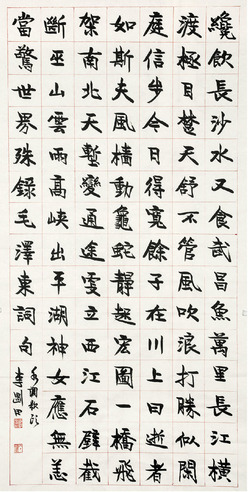 纔飲長沙水又食武昌魚萬里長江橫
渡極目楚天舒不管風吹浪打勝似閑
庭信步今日得寬餘子在川上曰逝者
如斯夫風檣動龜蛇靜起宏圖一橋飛
架南北天塹變通途更立西江石壁截
斷巫山雲雨高峽出平湖神女應無恙
當驚世界殊錄毛澤東詞句
水調歌頭
李剛田